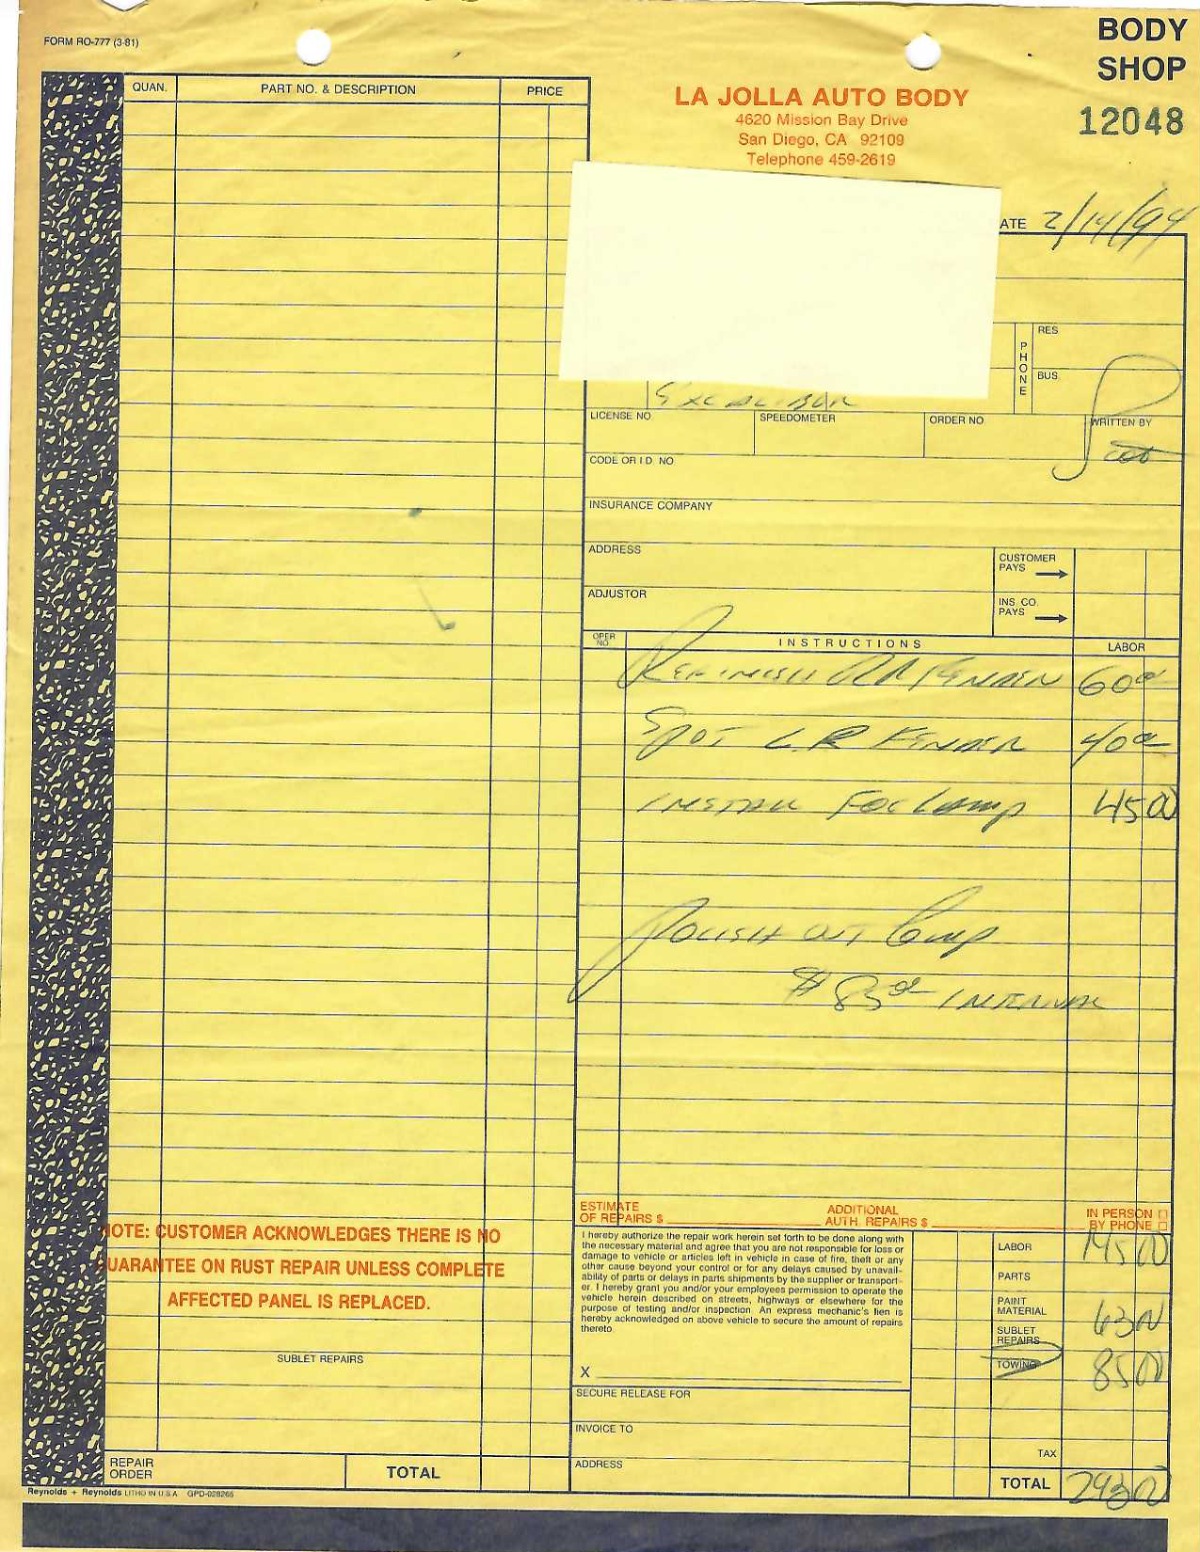 FORM RO-777 (3-81)
BODY
SHOP
12048
LA JOLLA AUTO BODY
4620 Mission Bay Drive
San Diego, CA 92109
Telephone 459-2619
ATE 2/14/94
QUAN. PART NO. & DESCRIPTION PRICE
PHONE
RES.
BUS.
EXCALIBUR
LICENSE NO. SPEEDOMETER ORDER NO. WRITTEN BY
CODE OR I.D. NO.
INSURANCE COMPANY
ADDRESS
CUSTOMER
PAYS
ADJUSTOR
INS. CO.
PAYS
OPER.
NO.
INSTRUCTIONS LABOR
REFINISH RR FENDER 60 00
SPOT L.R FENDER 40 00
INSTALL FOG LAMP 45 00
POLISH OUT Comp
$ 85 00 INTERNAL
ESTIMATE
OF REPAIRS $
ADDITIONAL
AUTH. REPAIRS $
IN PERSON
BY PHONE
I hereby authorize the repair work herein set forth to be done along with
the necessary material and agree that you are not responsible for loss or
damage to vehicle or articles left in vehicle in case of fire, theft or any
other cause beyond your control or for any delays caused by unavail-
ability of parts or delays in parts shipments by the supplier or transport-
er. I hereby grant you and/or your employees permission to operate the
vehicle herein described on streets, highways or elsewhere for the
purpose of testing and/or inspection. An express mechanic's lien is
hereby acknowledged on above vehicle to secure the amount of repairs
thereto.
X
SECURE RELEASE FOR
INVOICE TO
ADDRESS
LABOR 145 00
PARTS
PAINT
MATERIAL 63 00
SUBLET
REPAIRS
TOWING 85 00
TAX
TOTAL 293 00
NOTE: CUSTOMER ACKNOWLEDGES THERE IS NO
GUARANTEE ON RUST REPAIR UNLESS COMPLETE
AFFECTED PANEL IS REPLACED.
SUBLET REPAIRS
REPAIR
ORDER
TOTAL
Reynolds + Reynolds LITHO IN U.S.A. GPD-028265